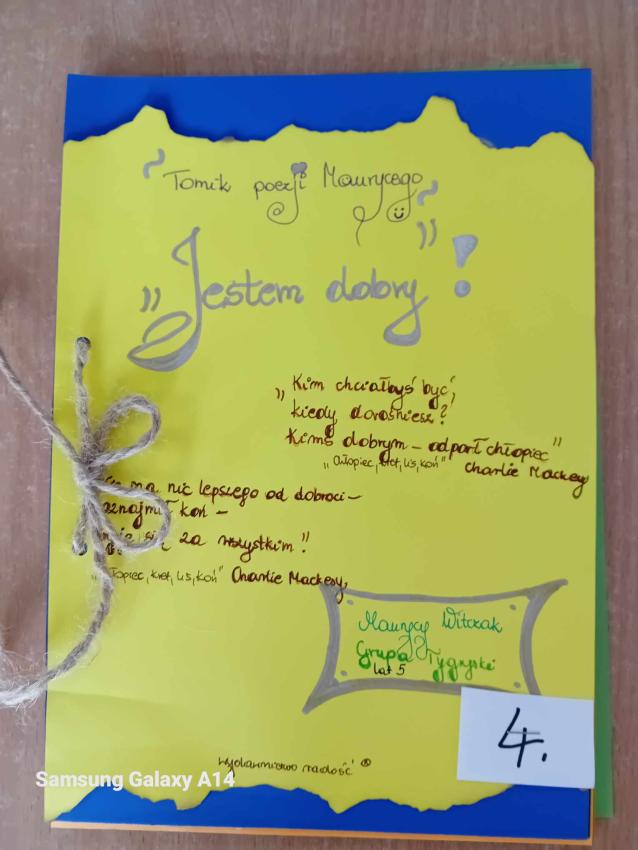 Tomik poezji Maurycego
„Jestem dobry"!
„Kim chciałbyś być,
kiedy dorośniesz?
Kimś dobrym – odparł chłopiec"
„Chłopiec, kret, lis, koń" Charlie Mackesy
ma nic lepszego od dobroci –
koń –
za wszystkim!"
kret, lis, koń" Charlie Mackesy,
Maurycy Witczak
Grupa Tygryski
lat 5
4.
wydawnictwo radość ®
Samsung Galaxy A14